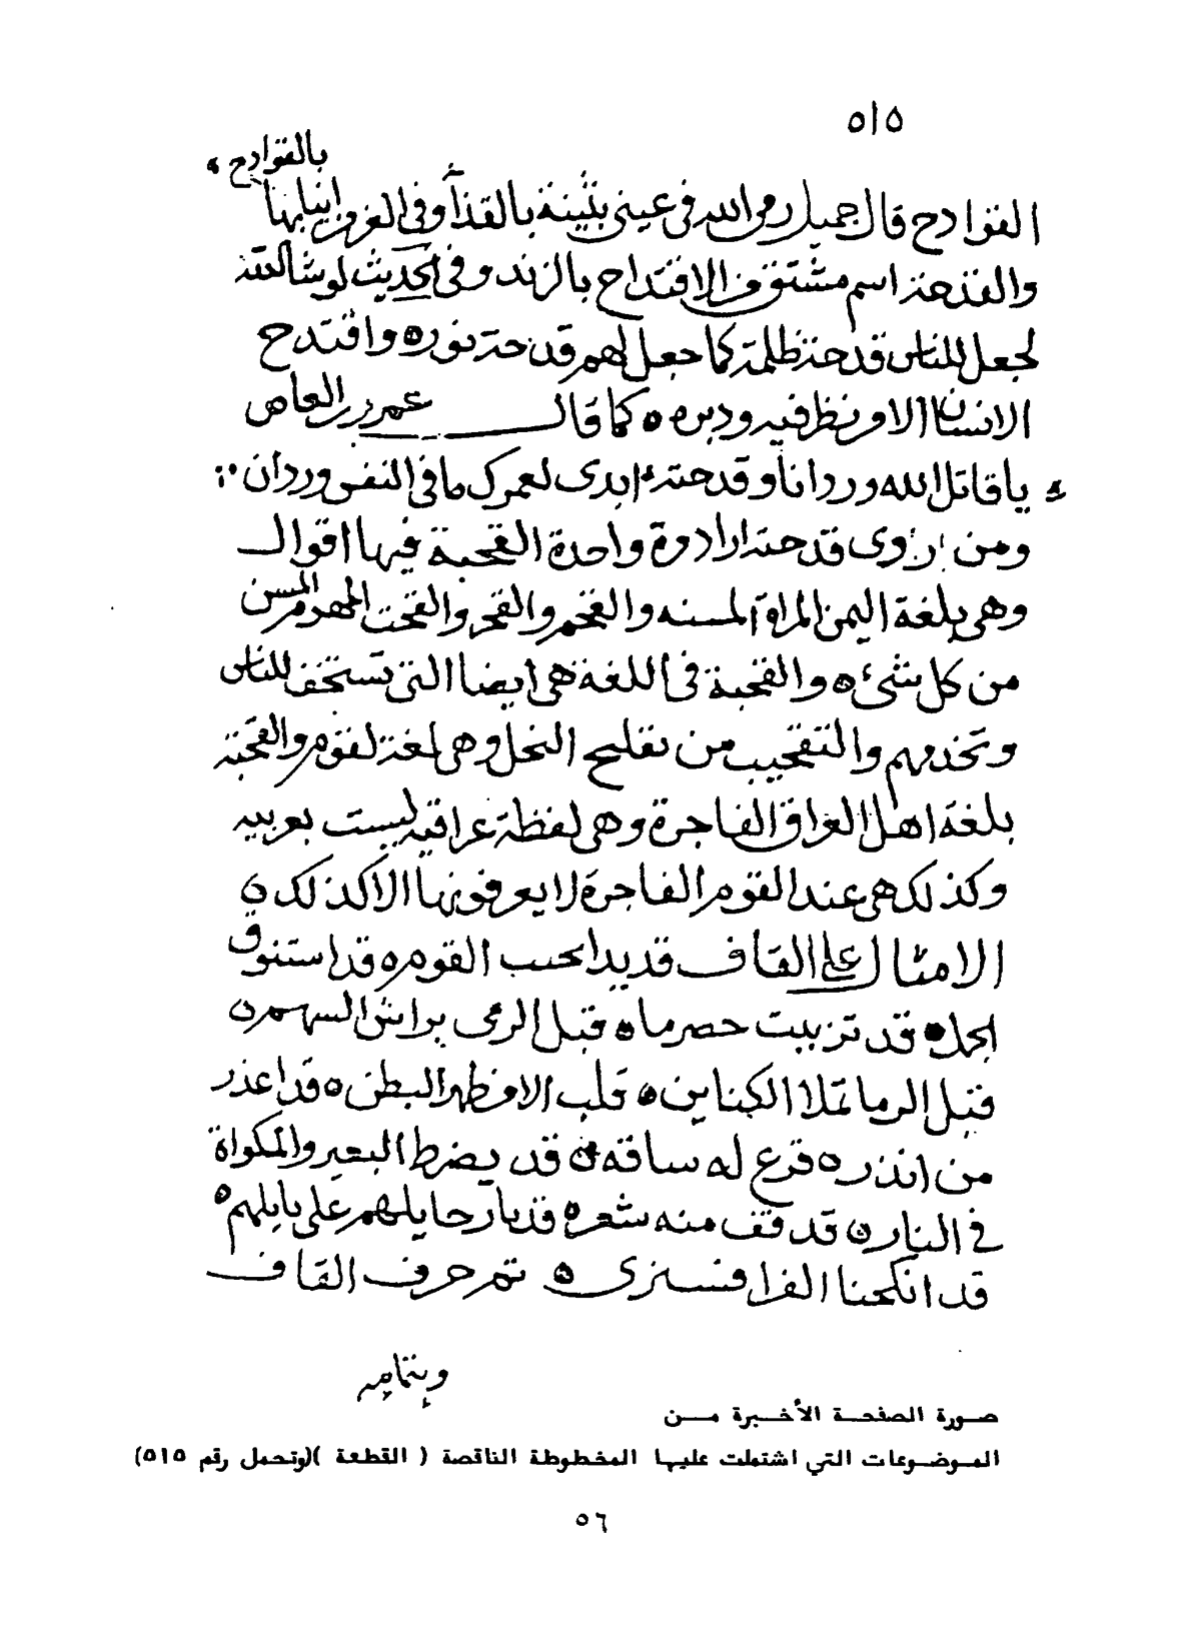 ٥١٥
بالقوادح
القوادح قال جميل رمى الله في عيني بثينة بالقذا وفي الغر من انيابها
والقدحة اسم مشتق من الاقتداح بالزند وفي الحديث لو شا الله
لجعل للناس قدحة ظلمة كما جعل لهم قدحة نوره واقتدح
الانسان الامر نظر فيه ودبره ٥ كما قال عمرو بن العاص
يا قاتل الله وردانا وقدحته ابدى لعمرك ما في النفس وردان
ومن روى قدحة اراد مرة واحدة القحبة فيها اقوال
وهي بلغة اليمن المراة المسنه والقحم والقحر والقحب الهرم المسن
من كل شيء ٥ والقحبة في اللغة هي ايضا التي تستخف للناس
وتخدمهم والتقحيب من تقليح النخل وهي لغة لقوم والقحبة
بلغة اهل العراق الفاجرة وهي لفظة عراقيه ليست بعربيه
وكذلك هي عند القوم الفاجرة لا يعرفونها الا كذلك ٥
الامثال على القاف قد يدا بحسب القوم ٥ قد استنوق
الجمل ٥ قد تزببت حصرما ٥ قبل الرمي يراش السهم ٥
قبل الرما تملا الكناين ٥ قلب الامر ظهر البطن ٥ قد اعذر
من انذر ٥ قرع له ساقه ٥ قد يضرط البعير والمكواة
في النار ٥ قد قف منه شعره ٥ قد بار حايلهم على بابلهم ٥
قد انكحنا الفرا فسنرى ٥ تم حرف القاف
وبتمامه
صورة الصفحة الأخيرة من
الموضوعات التي اشتملت عليها المخطوطة الناقصة ( القطعة )(وتحمل رقم ٥١٥)
٥٦